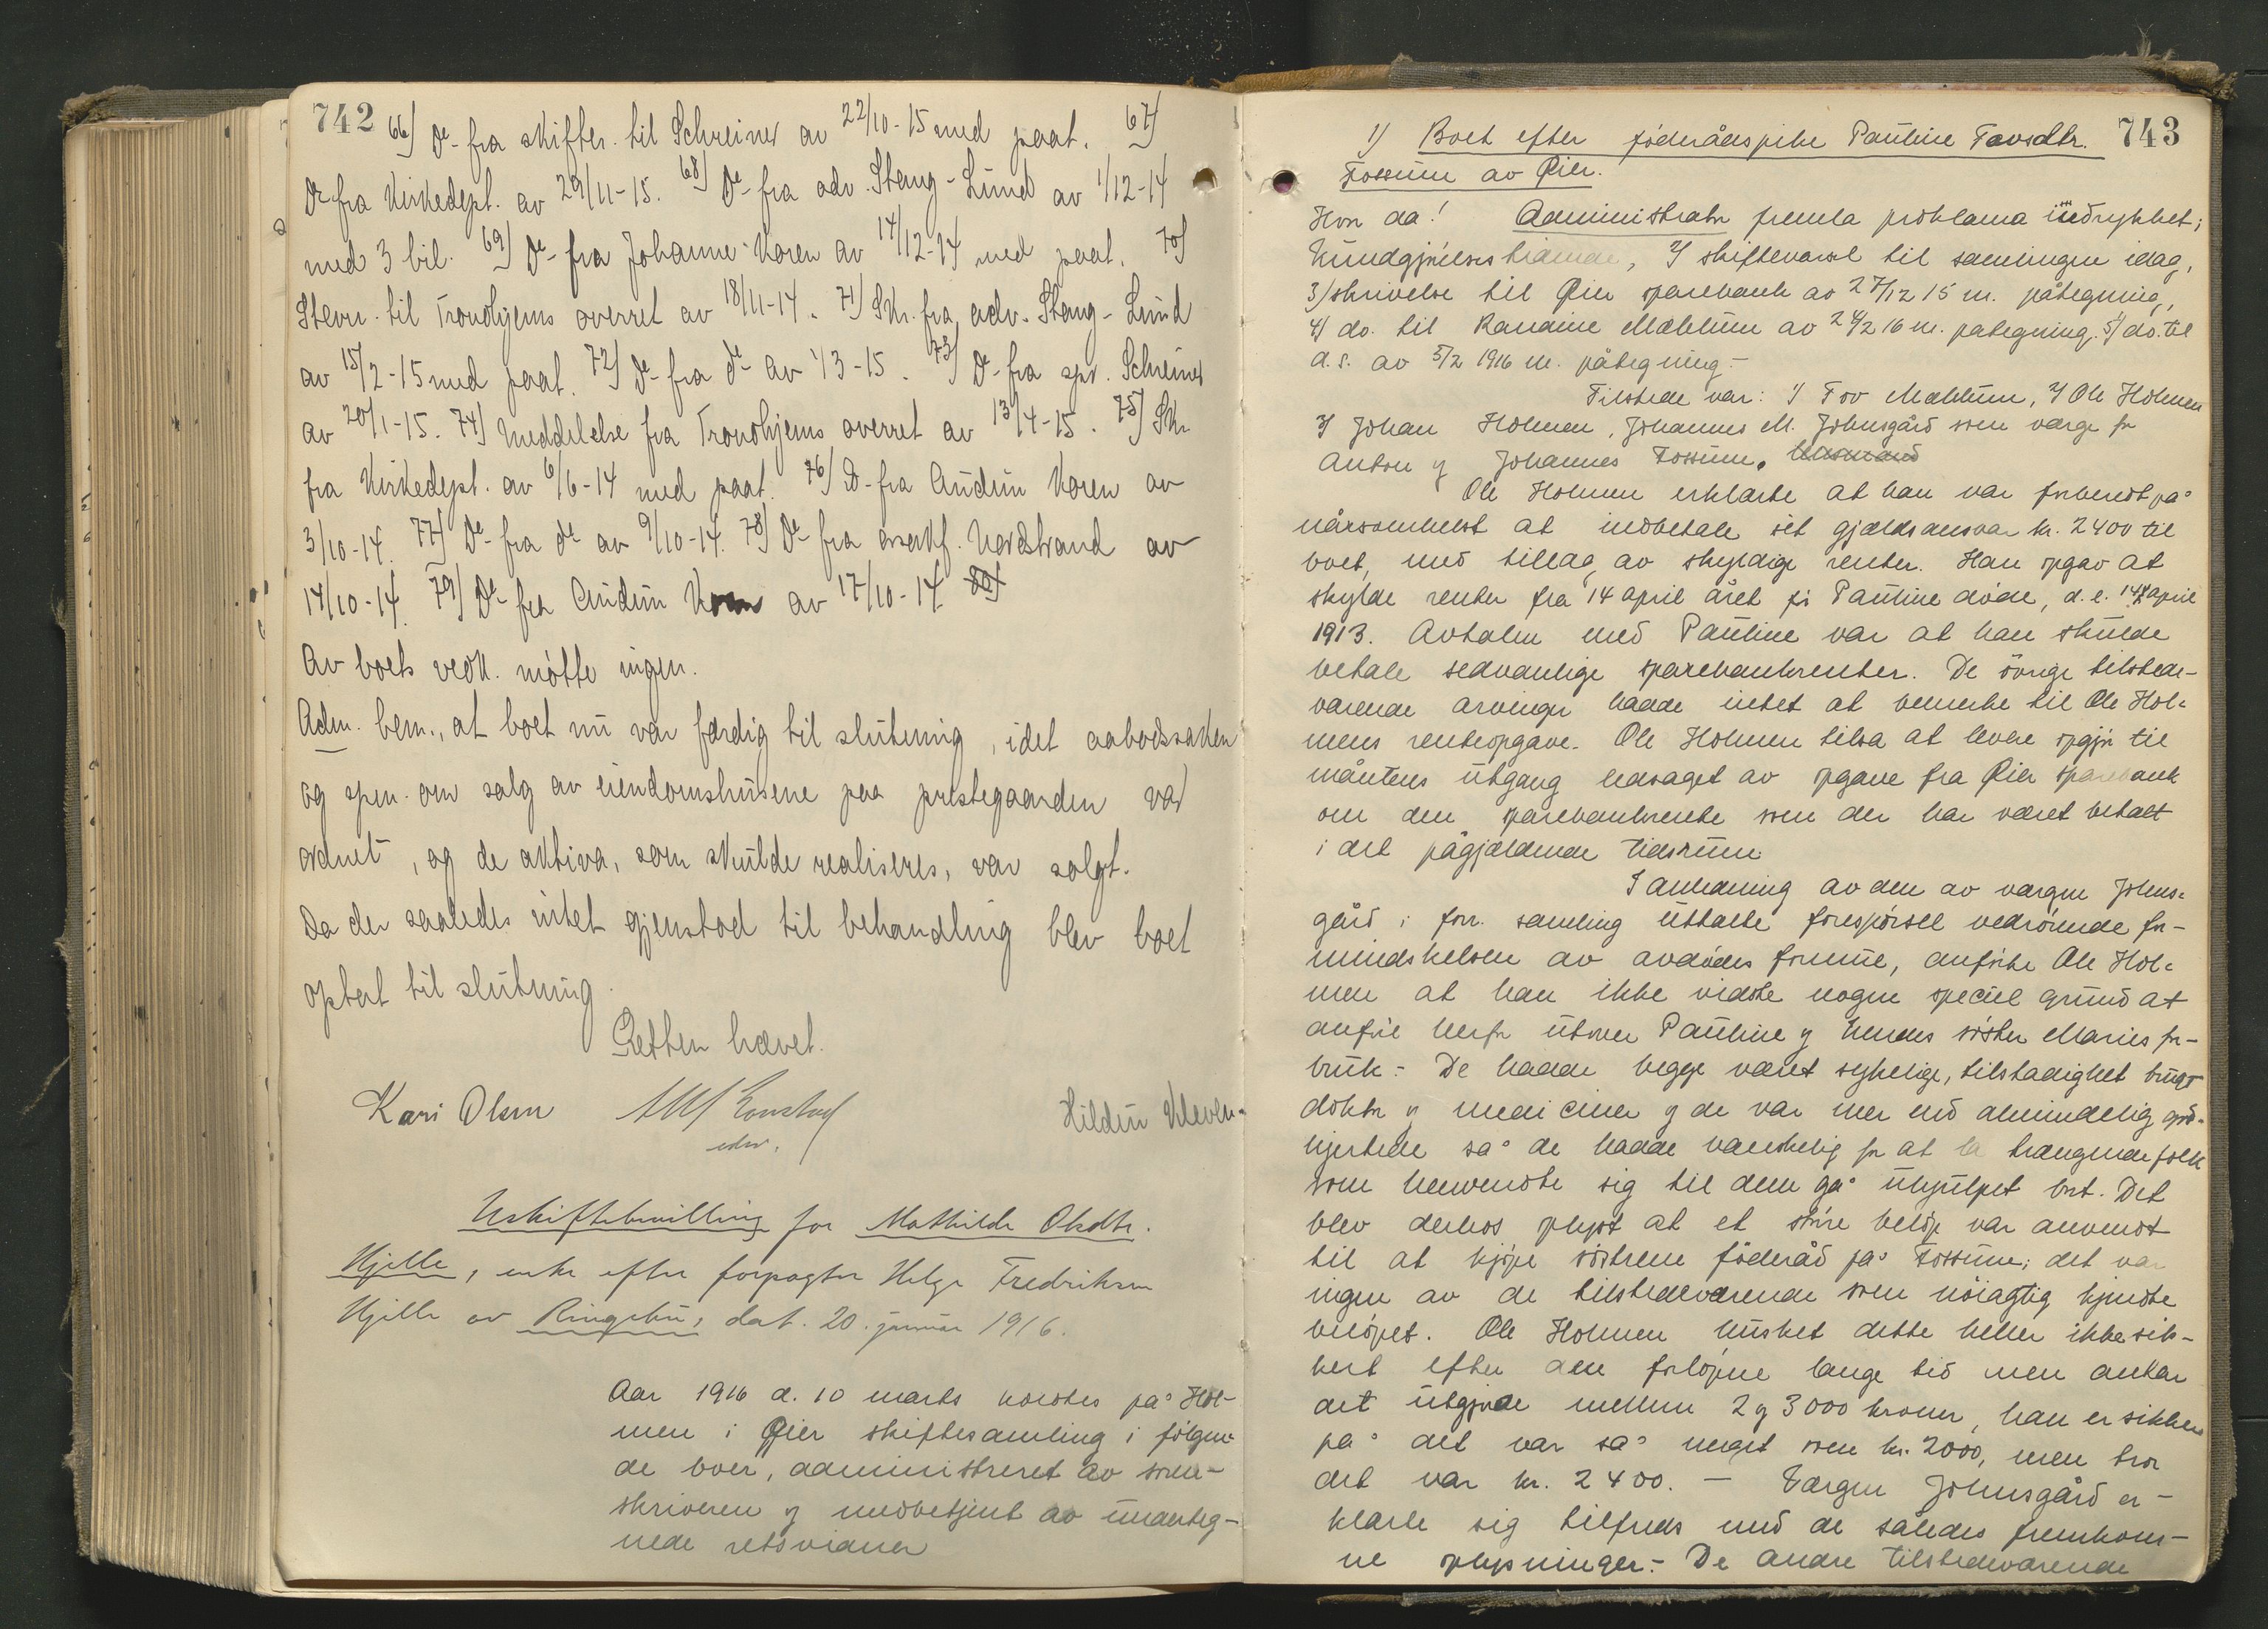 742
66) Do fra skifter. til Schreiner av 22/10-15 med paat. 67)
Do fra Kirkedept. av 29/11-15. 68) Do fra adv. Stang-Lund av 1/12-14
med 3 bil. 69) Do fra Johanne Koren av 14/12-14 med paat. 70)
Stevn. til Trondhjems overret av 18/11-14. 71) Skr. fra adv. Stang-Lund
av 15/2-15 med paat. 72) Do fra do av 1/3-15. 73) Do fra spr. Schreiner
av 20/1-15. 74) Meddelelse fra Trondhjems overret av 13/4-15. 75) Skr.
fra Kirkedept. av 6/6-14 med paat. 76) Do fra Audun Koren av
3/10-14. 77) Do fra do av 9/10-14. 78) Do fra Nordstrand av
14/10-14. 79) Do fra Audun Koren av 17/10-14. 80)
Av boets vedk. møtte ingen.
Adm. bem., at boet nu var færdig til slutning, idet aabodssaken
og spm. om salg av eiendomshusene paa prestegaarden var
ordnet, og de aktiva, som skulde realiseres, var solgt.
Da der saaledes intet gjenstod til behandling blev boet
optat til slutning.
Retten hævet.
Kari Olsen
Hildur Kleven
Uskiftebevilling for Mathilde Olsdtr.
Hjelle, enke efter forpagter Helge Fredriksen
Hjelle av Ringebu, dat. 20. januar 1916.
Aar 1916 d. 10 marts holdtes på Hol-
men i Øier skiftesamling i følgen-
de boer, administreret av soren-
skriveren og medbetjent av underteg-
nede retsvidner
743
1) Boet efter føderådspike Pauline Tovsdtr.
Fossum av Øier.
Hvor da! Administrator fremla proklama indrykket i
Kundgjørelsestidende, 2) skiftevarsel til samlingen idag,
3) skrivelse til Øier sparebank av 27/12 15 m. påtegning,
4) do. til Randine Mæhlum av 24/2 16 m. påtegning. 5) do. til
d.s. av 5/2 1916 m. påtegning.-
Tilstede var: 1) Tov Mæhlum, 2) Ole Holmen
3) Johan Holmen, Johannes M. Johnsgård som værge for
Anton og Johannes Fossum.
Ole Holmen erklærte at han var forberedt på
nårsomhelst at indbetale sit gjældsansvar kr. 2400 til
boet, med tillæg av skyldige renter. Han opgav at
skylde renter fra 14 april året før Pauline døde, d.e. 14 april
1913. Avtalen med Pauline var at han skulde
betale sedvanlige sparebankrenter. De øvrige tilstede-
værende arvinger hadde intet at bemerke til Ole Hol-
mens renteopgave. Ole Holmen tilsa at levere opgjør til
måntens utgang ledsaget av opgave fra Øier sparebank
om den sparebankrente som der har været betalt
i det pågjældende tidsrum.
I anledning av den av værgen Johns-
gård i forr. samling uttalte forespørsel vedrørende for-
mindskelsen av avdødes formue, anførte Ole Hol-
men at han ikke vidste nogen speciel grund at
anføre herfor utover Pauline og hendes søster Maries for-
bruk.- De hadde begge været sykelige, tilstadighet brugt
doktor og mediciner og de var mer end almindelig god-
hjertede så de hadde vanskelig for at la trængende folk
som henvendte sig til dem gå uhjulpet bort. Det
blev derhos oplyst at et større beløp var anvendt
til at kjøpe søstrene føderåd på Fossum; det var
ingen av de tilstedeværende som nøiagtig kjendte
beløpet. Ole Holmen husket dette heller ikke sik-
kert efter den forløpne lange tid men antar
det utgjorde mellem 2 og 3000 kroner, han er sikker
på det var så meget som kr. 2000, men tror
det var kr. 2400. — Værgen Johnsgård er-
klærte sig tilfreds med de således fremkom-
ne oplysninger.- De andre tilstedeværende